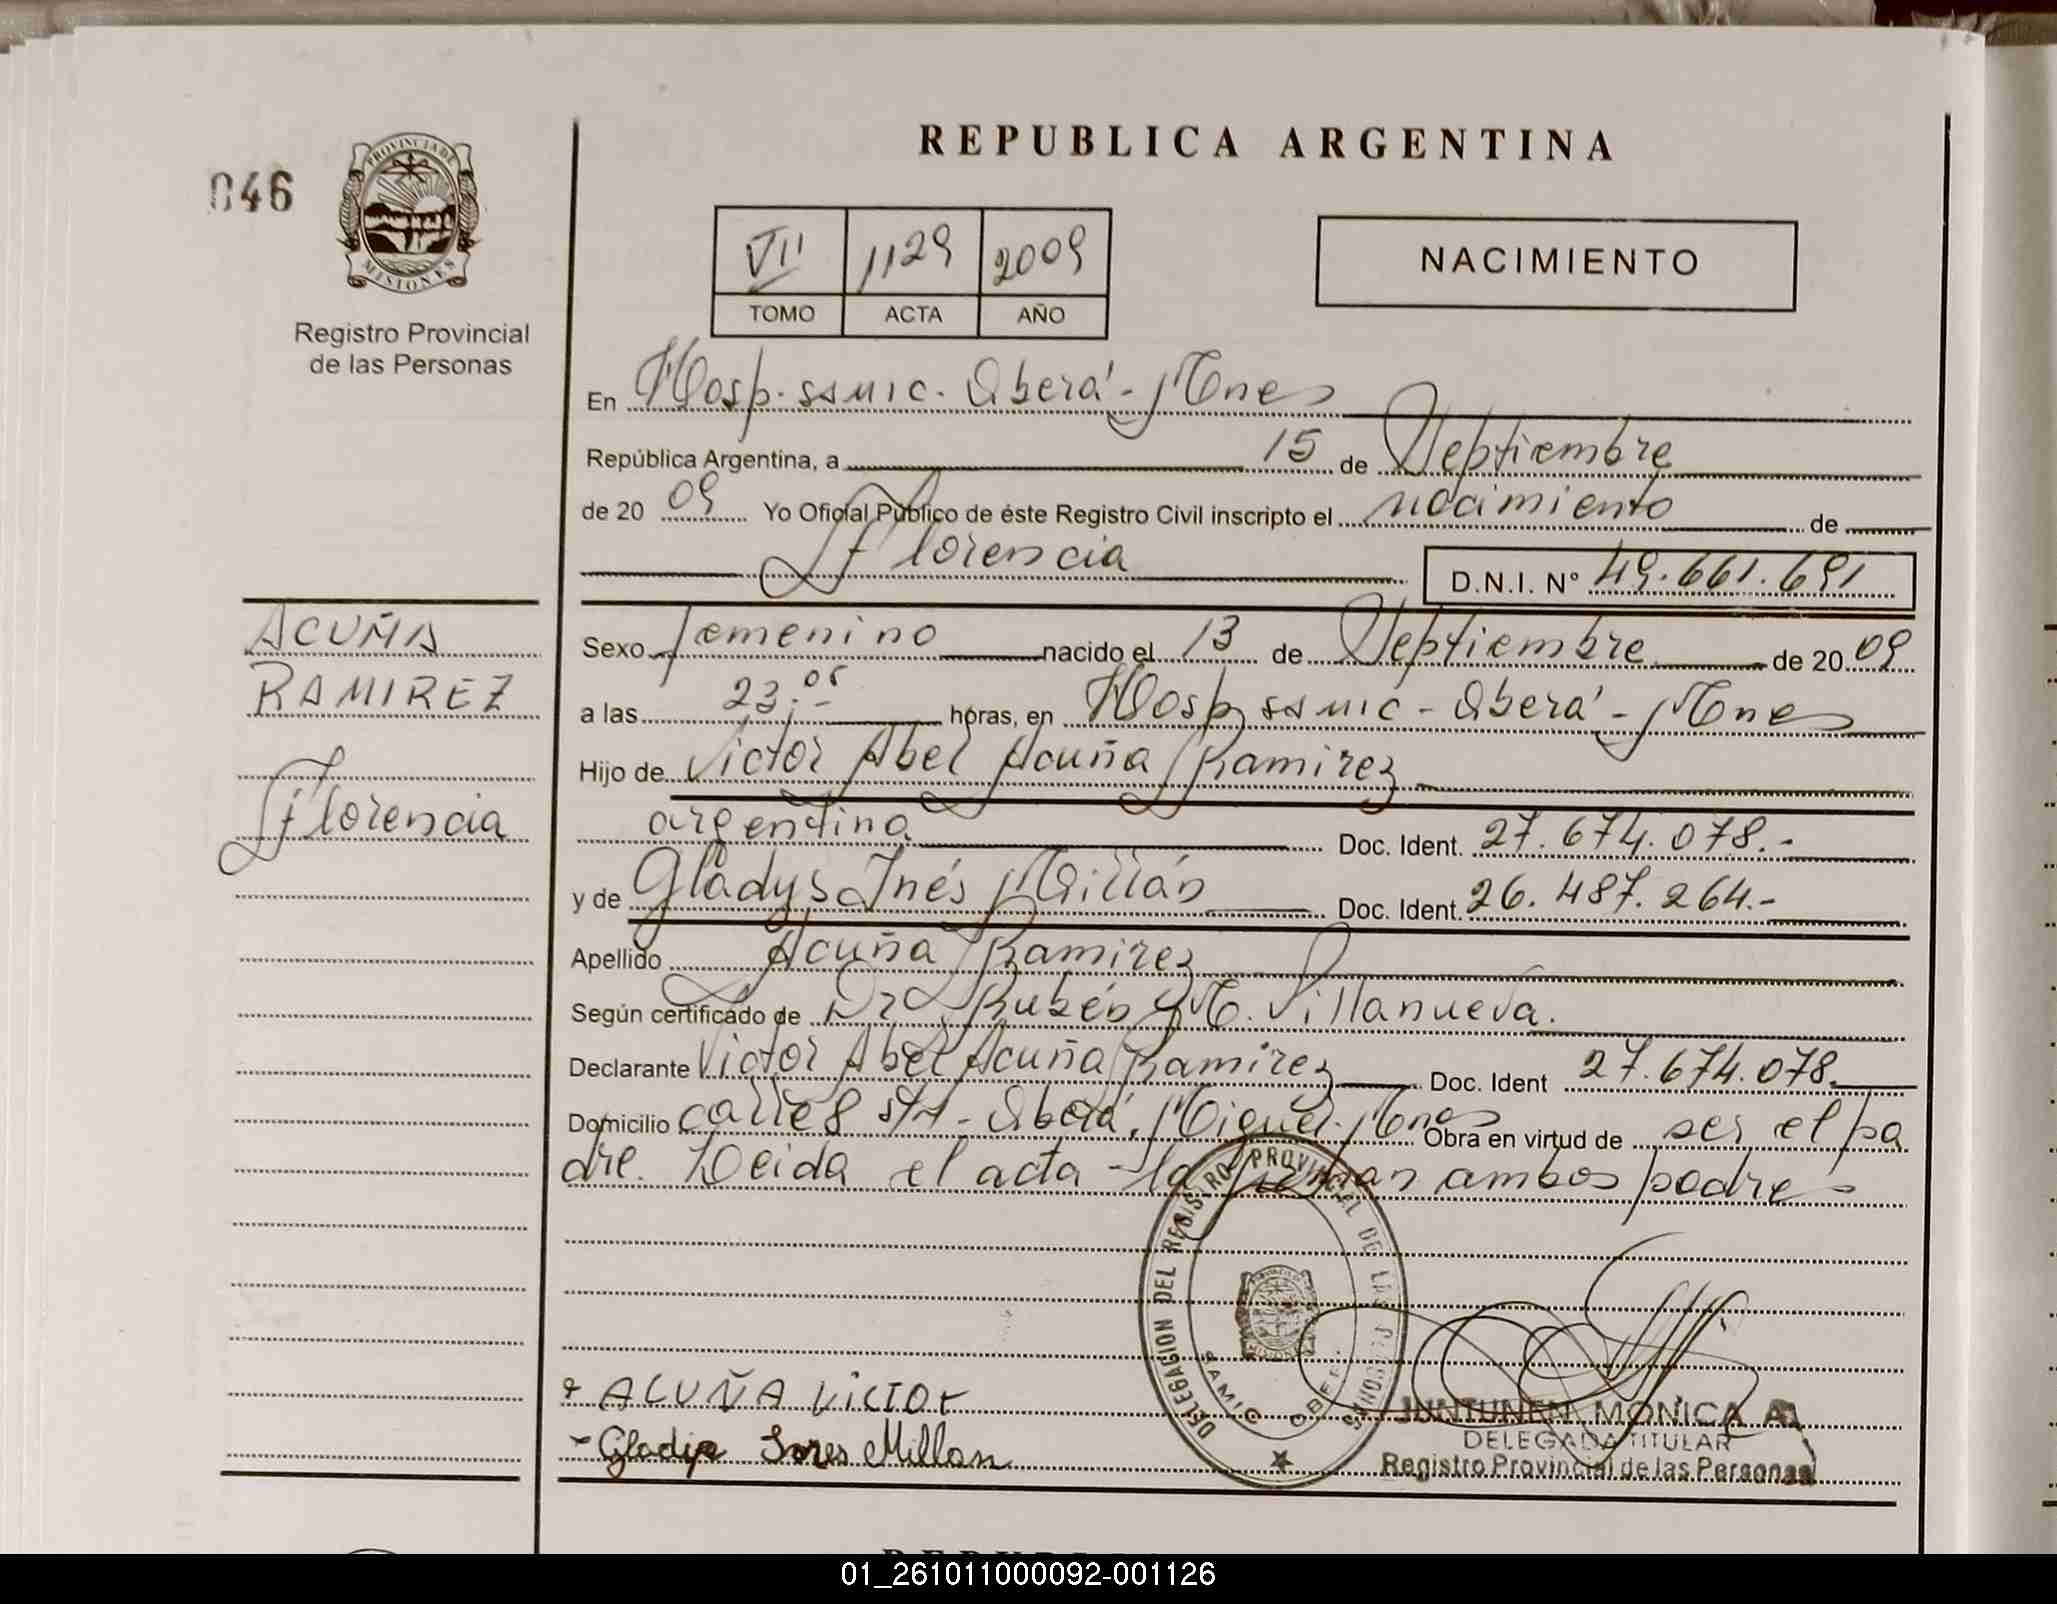 REPUBLICA ARGENTINA
046
PROVINCIA DE
MISIONES
Registro Provincial
de las Personas
VII 1129 2009
TOMO ACTA AÑO
NACIMIENTO
En Hosp. ssmic. Oberá - Mnes
República Argentina, a 15 de Septiembre
de 20 09 Yo Oficial Público de éste Registro Civil inscripto el nacimiento de
Florencia D.N.I. Nº 49.661.691
ACUÑA
RAMIREZ
Florencia
Sexo femenino nacido el 13 de Septiembre de 20 09
a las 23:05 horas, en Hosp ssmic - Oberá - Mnes
Hijo de Victor Abel Acuña Ramirez
argentina Doc. Ident. 27.674.078.-
y de Gladys Inés Millán Doc. Ident. 26.487.264.-
Apellido Acuña Ramirez
Según certificado de Dr Rubén M. Villanueva.
Declarante Victor Abel Acuña Ramirez Doc. Ident 27.674.078.
Domicilio calle 8 s/n - Oberá, Miguel - Mnes Obra en virtud de ser el pa
dre. Leida el acta - la firman ambos padres
DELEGACION DEL REGISTRO PROVINCIAL DE LAS PERSONAS
ACUÑA VICTOR
Gladys Ines Millan
JUNTUNEN MONICA A.
DELEGADA TITULAR
Registro Provincial de las Personas
01_261011000092-001126